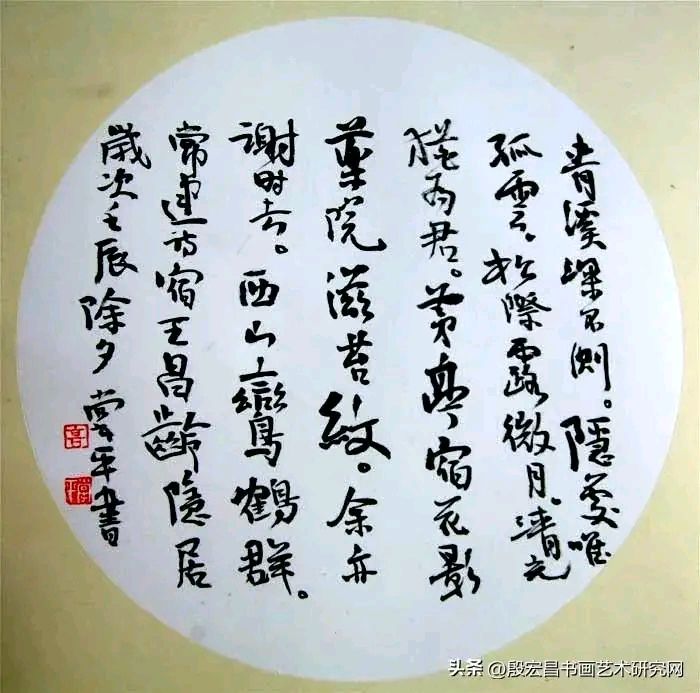 青溪深不测。隱處唯
孤雲。松際露微月。清光
猶为君。茅亭宿花影
藥院滋苔紋。余亦
谢时去。西山鸞鶴群。
常建诗宿王昌齡隐居
歲次壬辰除夕 平書
头条 @殷宏昌书画艺术研究网